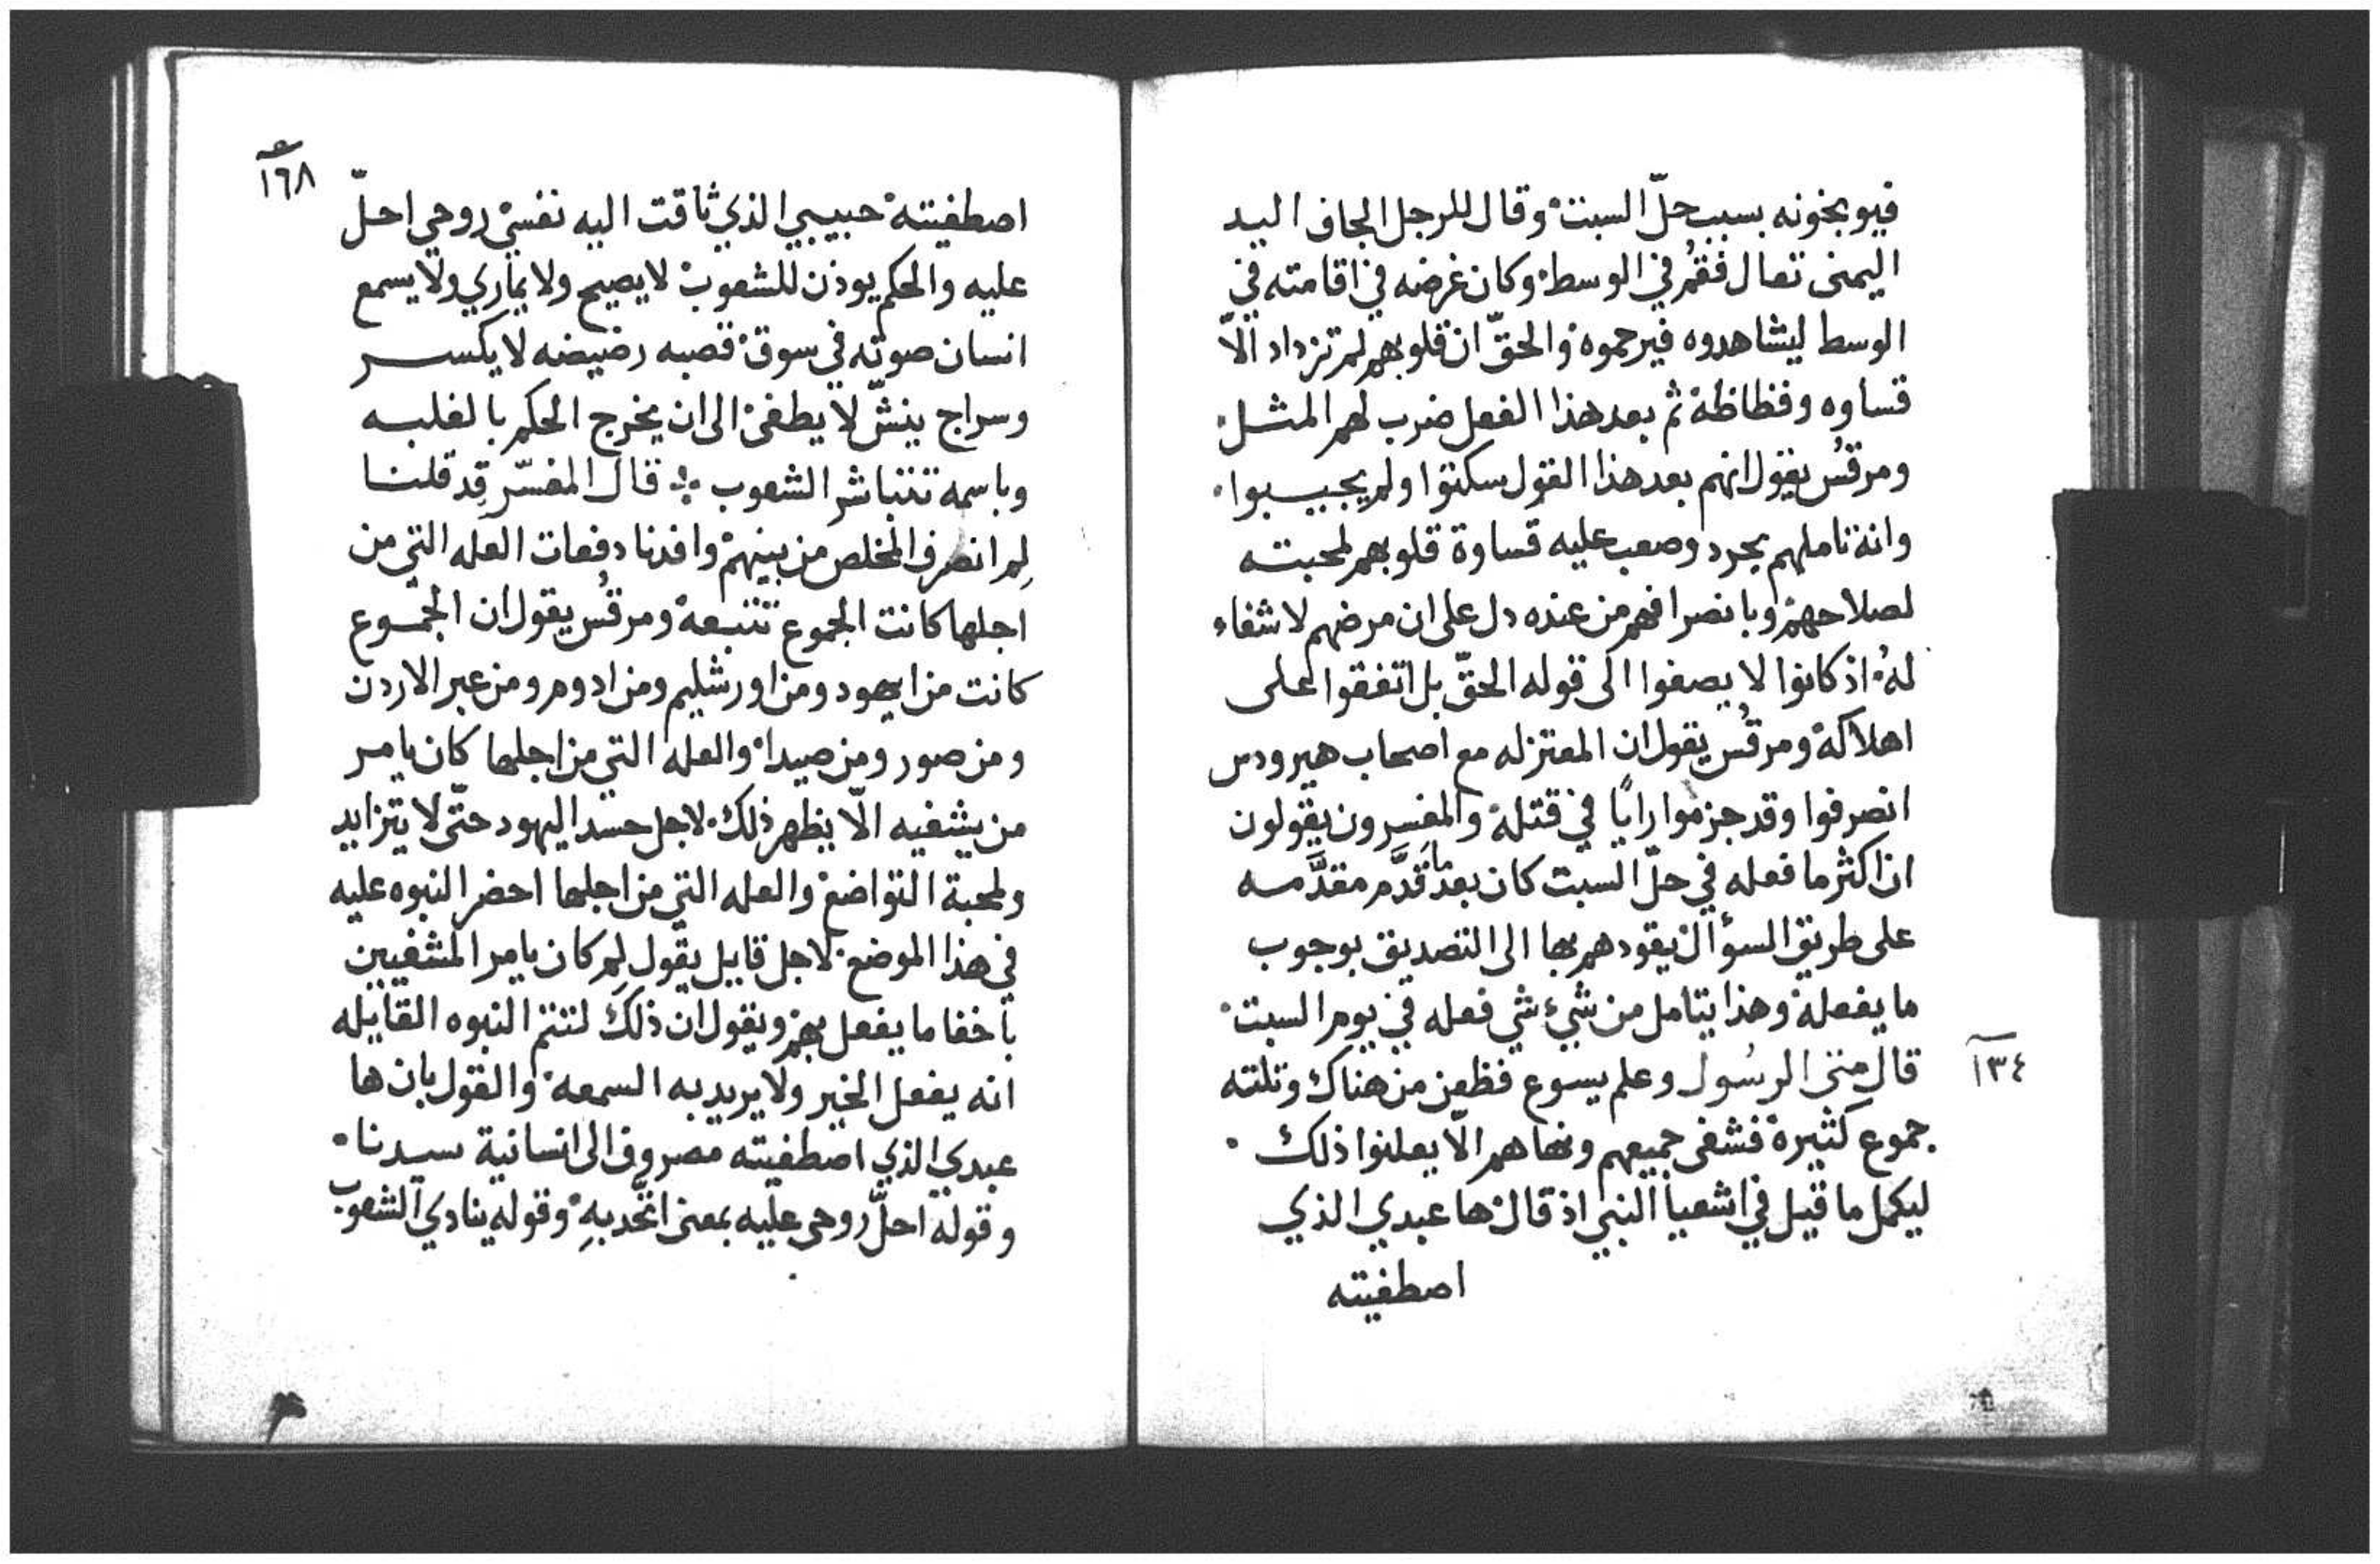 فيوبخونه بسبب حلّ السبت وقال للرجل الجاف اليد
اليمنى تعال فقُم في الوسط وكان غرضه في اقامته في
الوسط ليشاهدوه فيرحموه والحقّ ان قلوبهم لم تزداد الّا
قساوه وفظاظة ثم بعد هذا الفعل ضرب لهم المثل
ومرقسُ يقول انهم بعد هذا القول سكتوا ولم يجيبوا
وانه تاملهم بحرد وصعب عليه قساوة قلوبهم لمحبته
لصلاحهم وبانصرافهم من عنده دل على ان مرضهم لا شفاء
لهُ اذ كانوا لا يصغوا الى قوله الحقّ بل اتفقوا على
اهلاكه ومرقُس يقول ان المعتزله مع اصحاب هيرودس
انصرفوا وقد جزموا رايًا في قتله والمفسرون يقولون
ان اكثر ما فعله في حلّ السبت كان بعد ما قدَّم مقدَّمه
على طريق السؤال يقودهم بها الى التصديق بوجوب
ما يفعله وهذا يتامل من شيء شي فعله في يوم السبت
١٣٤
قال متى الرسُول وعلم يسوع فظعن من هناك وتلته
جموع كثيرة فشفى جميعهم ونهاهم الّا يعلنوا ذلك
ليكمل ما قيل في اشعيا النبي اذ قال ها عبدي الذي
اصطفيته
١٦٨
اصطفيته حبيبي الذي ثاقت اليه نفسي روحي احلّ
عليه والحكم يوذن للشعوب لا يصيح ولا يماري ولا يسمع
انسان صوته في سوق قصبه رضيضه لا يكسر
وسراج ينشّ لا يطفئ الى ان يخرج الحكم بالغلبه
وباسمه تتباشر الشعوب ܀ قال المفسّر قد قلنا
لِم انصرف المخلص من بينهم وافدنا دفعات العله التي من
اجلها كانت الجموع تتبعه ومرقُس يقول ان الجموع
كانت من ايهود ومن اورشليم ومن ادوم ومن عبر الاردن
ومن صور ومن صيدا والعله التي من اجلها كان يامر
من يشفيه الّا يظهر ذلك لاجل حسد اليهود حتّى لا يتزايد
ولمحبة التواضع والعله التي من اجلها احضر النبوه عليه
في هذا الموضع لاجل قايل يقول لِم كان يامر المشفيين
باخفا ما يفعل بهم ويقول ان ذلك لتتم النبوه القايله
انه يفعل الخير ولا يريد به السمعه والقول بان ها
عبدي الذي اصطفيته مصروف الى انسانية سيدنا
وقوله احلّ روحى عليه بمعنى اتّحد بهِ وقوله ينادي الشعوب